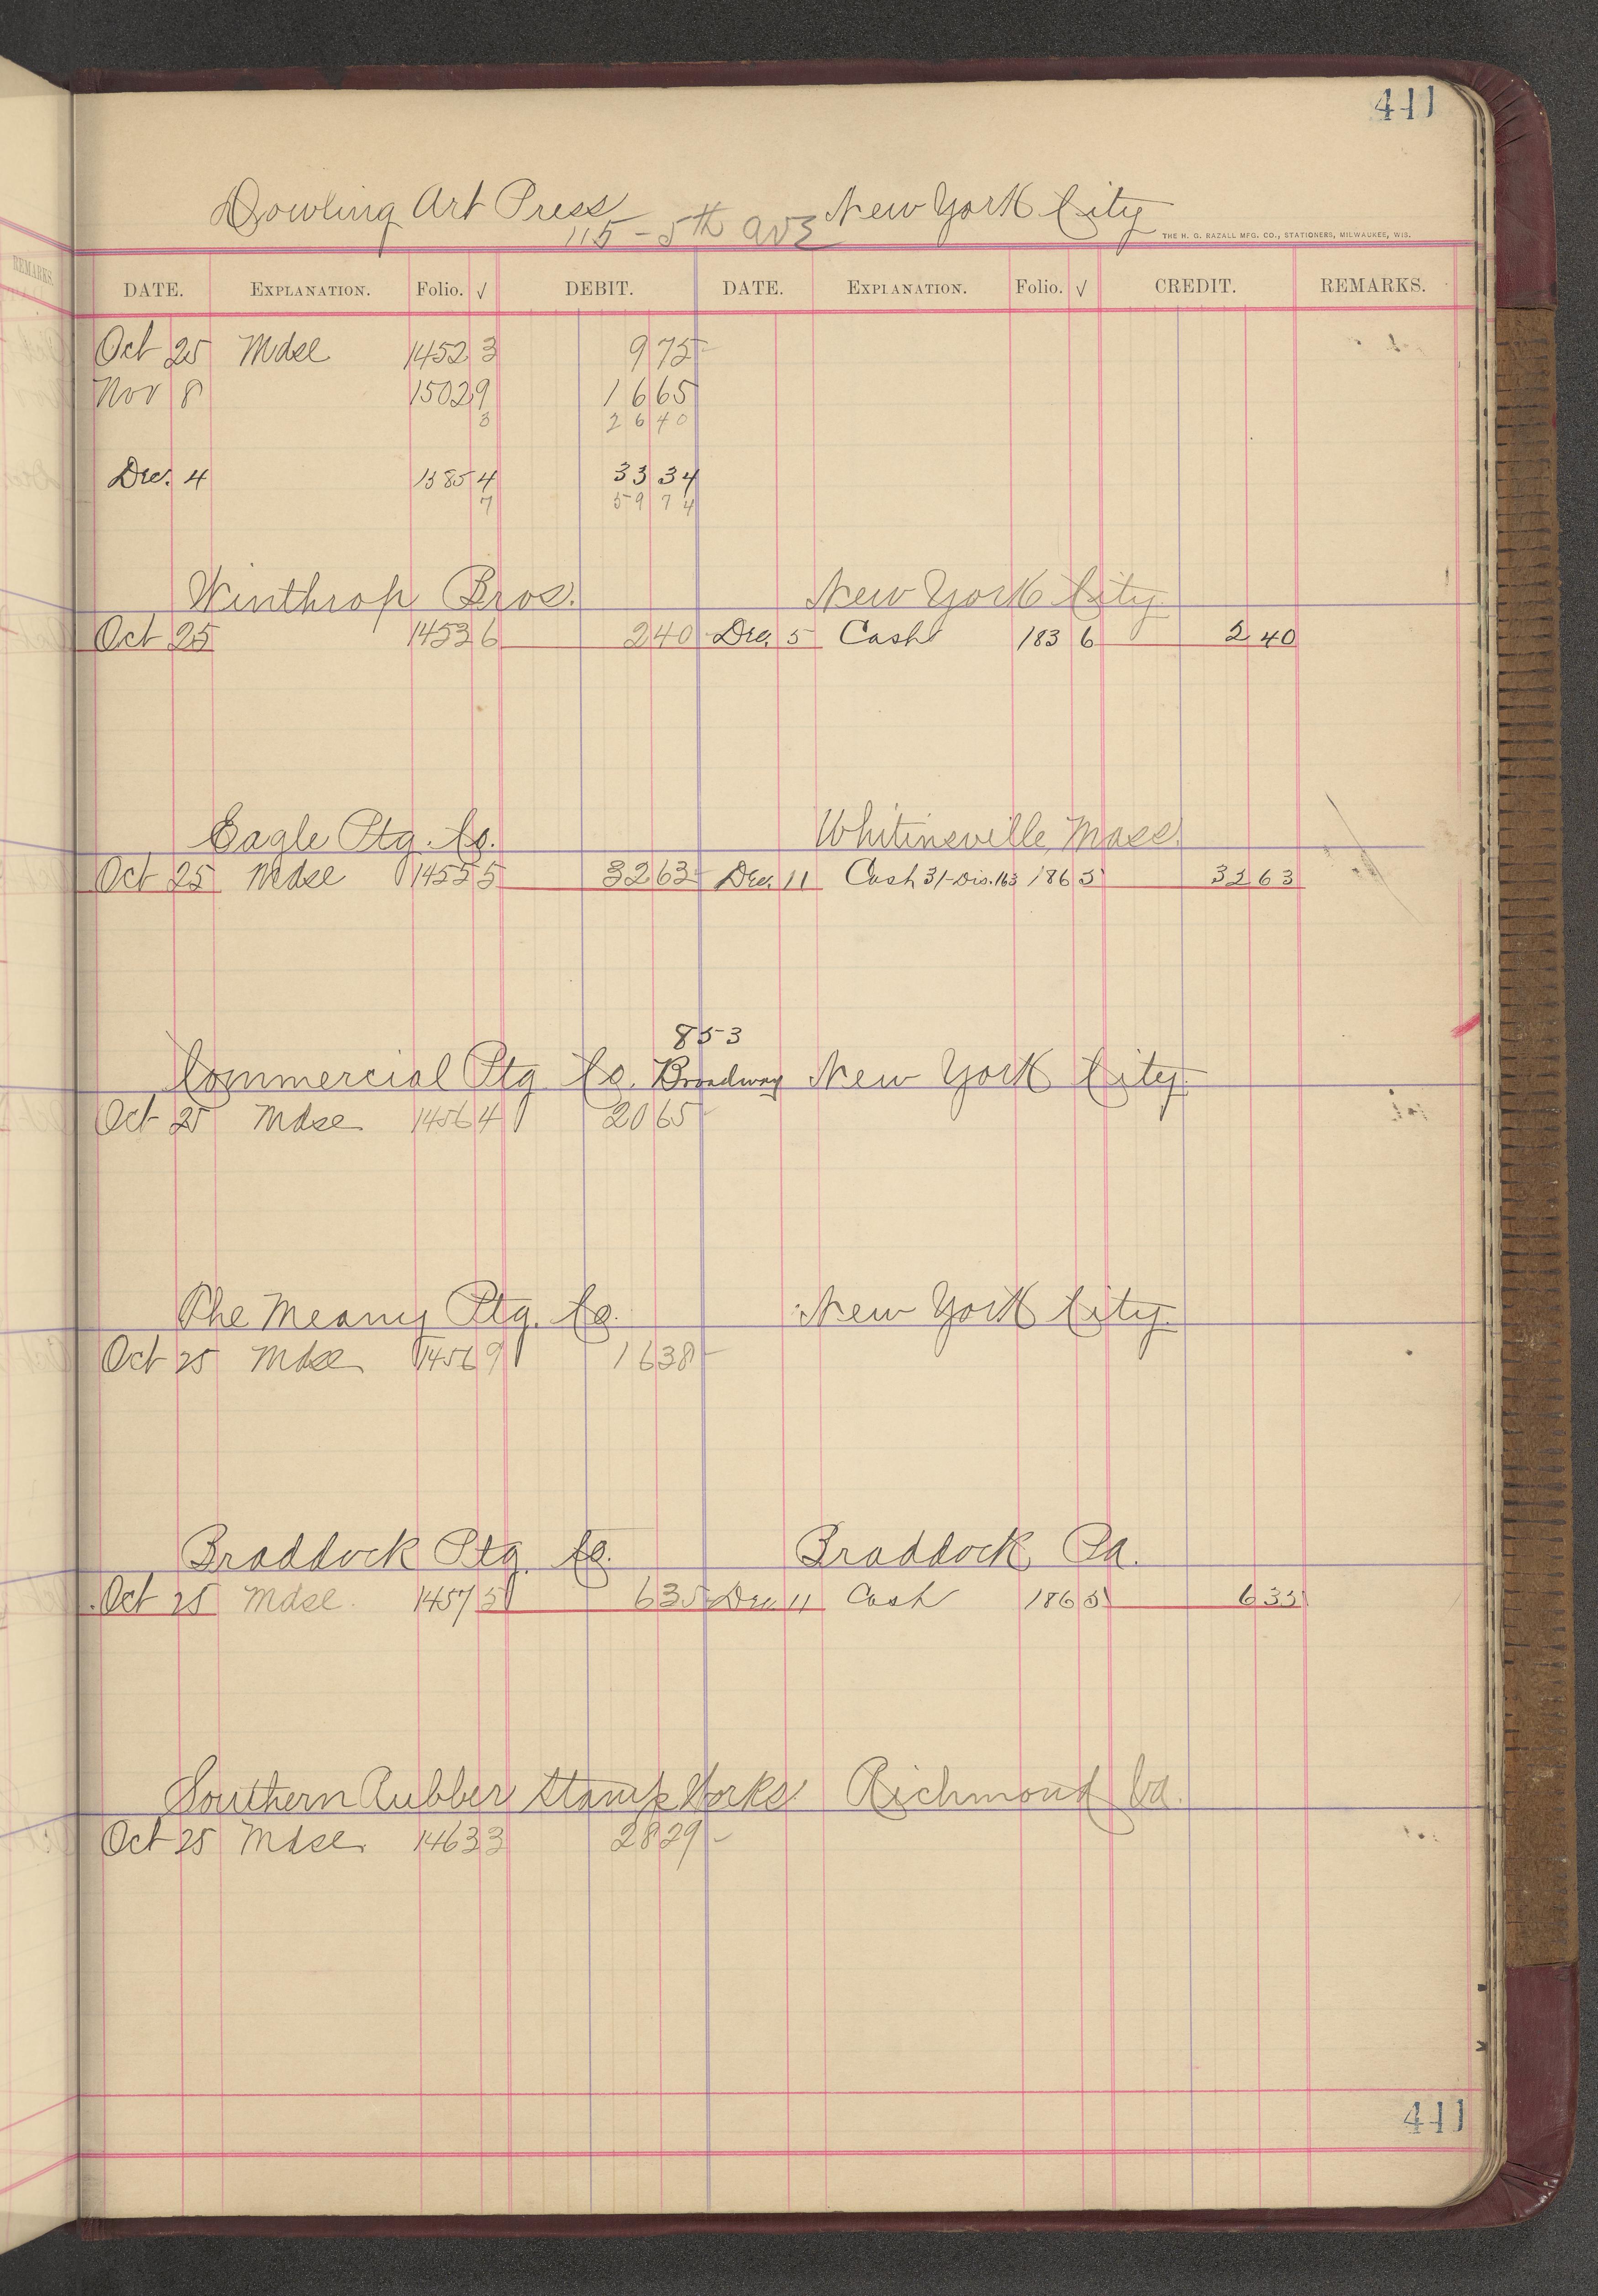 441
Dowling Art Press New York City
115 - 5th Ave
THE H. G. RAZALL MFG. CO., STATIONERS, MILWAUKEE, WIS.
REMARKS.
DATE. EXPLANATION. Folio. √ DEBIT. DATE. EXPLANATION. Folio. √ CREDIT. REMARKS.
Oct 25 Mdse 1452 3 9 75
Nov 8 1502 9 16 65
3 26 40
Dec. 4 1385 4 33 34
7 59 74
Winthrop Bros. New York City
Oct 25 1453 6 2 40 Dec. 5 Cash 183 6 2 40
Eagle Ptg. Co. Whitinsville Mass.
Oct 25 Mdse 1455 5 32 63 Dec. 11 Cash 31- Dis. 163 186 5 32 63
853
Commercial Ptg Co. Broadway New York City.
Oct 25 Mdse 1456 4 20 65
The Meany Ptg. Co. New York City.
Oct 25 Mdse 1456 9 16 38
Braddock Ptg. Co. Braddock Pa.
Oct 25 Mdse. 1457 5 6 35 Dec 11 Cash 186 5 6 35
Southern Rubber Stamp Works Richmond Va.
Oct 25 Mdse. 1463 3 28 29
441